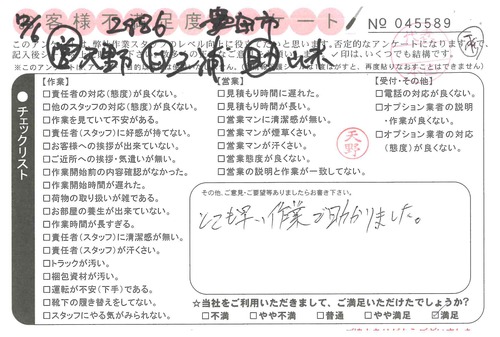 お客様不満足度アンケート! No 045589
2986 豊田市
【作業】
□責任者の対応(態度)が良くない。
□他のスタッフの対応(態度)が良くない。
□作業を見ていて不安がある。
□責任者(スタッフ)に好感が持てない。
□お客様への挨拶が出来ていない。
□ご近所への挨拶・気遣いが無い。
□作業開始前の内容確認がなかった。
□作業開始時間が遅れた。
□荷物の取り扱いが雑である。
□お部屋の養生が出来ていない。
□作業時間が長すぎる。
□責任者(スタッフ)に清潔感が無い。
□責任者(スタッフ)が汗くさい。
□トラックが汚い。
□梱包資材が汚い。
□運転が不安(下手)である。
□靴下の履き替えをしてない。
□スタッフにやる気がみられない。
【営業】
□見積もり時間に遅れた。
□見積もり時間が長い。
□営業マンに清潔感が無い。
□営業マンが煙草くさい。
□営業マンが汗くさい。
□営業態度が良くない。
□営業の説明と作業が一致してない。
【受付・その他】
□電話の対応が良くない。
□オプション業者の説明
・作業が良くない。
□オプション業者の対応
(態度)が良くない。
天野
チェックリスト
その他、ご意見・ご要望等ありましたらお書き下さい。
とても早い作業で助かりました。
☆当社をご利用いただきまして、ご満足いただけたでしょうか?
□不満 □やや不満 □普通 □やや満足 ☑満足